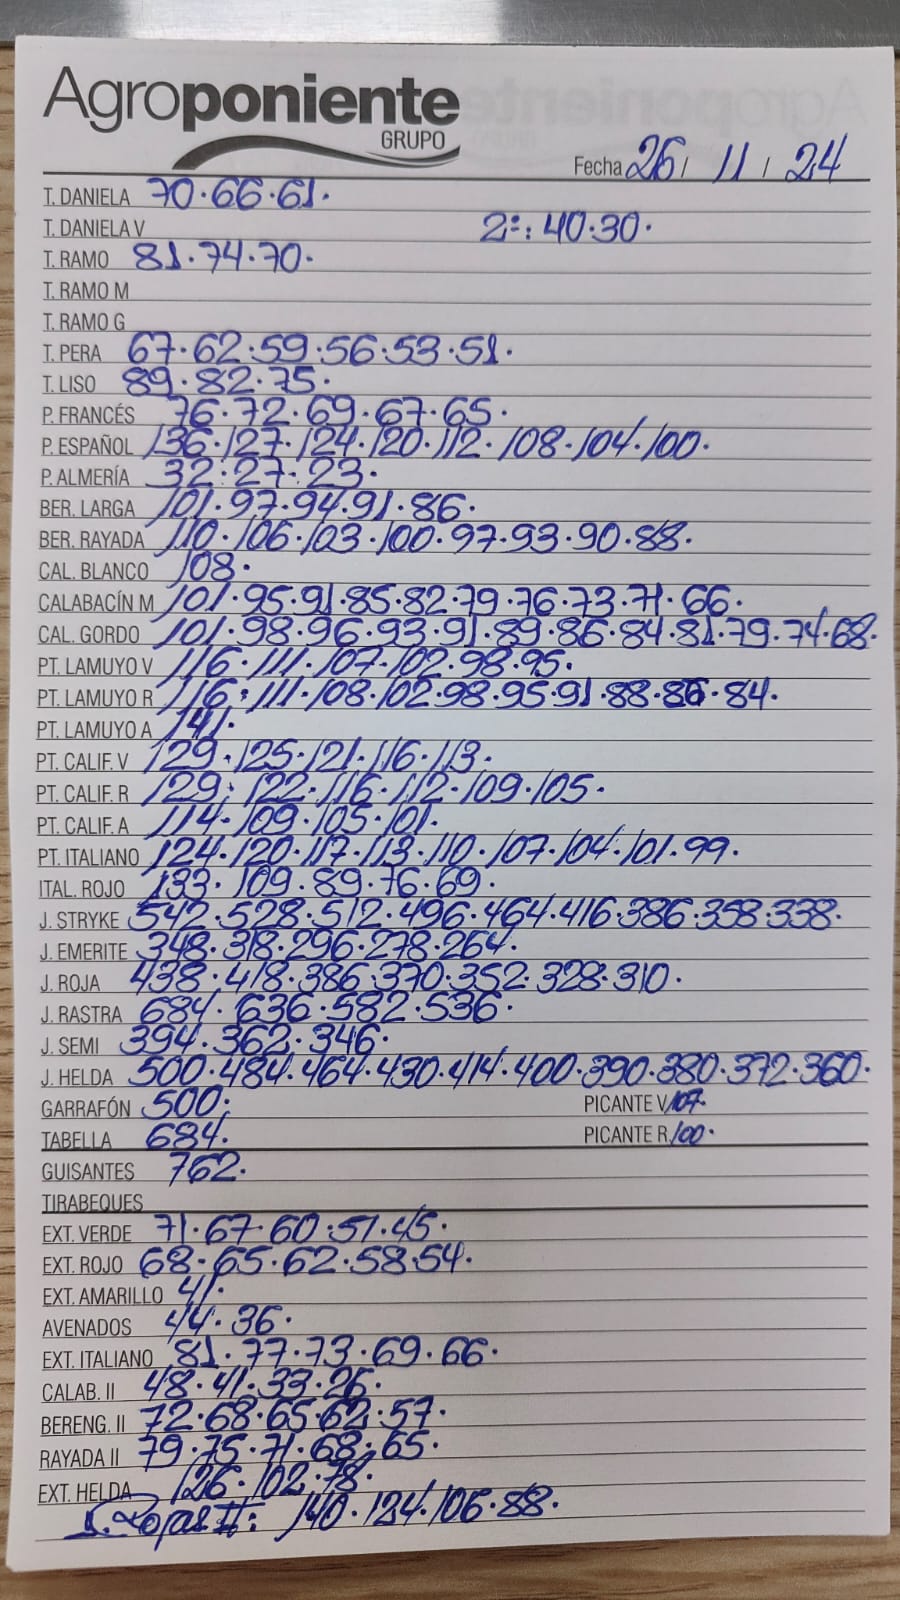 Agroponiente
GRUPO
Fecha 26 / 11 / 24
T. DANIELA 70·66·61·
T. DANIELA V 2ª: 40·30·
T. RAMO 81·74·70·
T. RAMO M
T. RAMO G
T. PERA 67·62·59·56·53·51·
T. LISO 89·82·75·
P. FRANCÉS 76·72·69·67·65·
P. ESPAÑOL 136·127·124·120·112·108·104·100·
P. ALMERÍA 32·27·23·
BER. LARGA 101·97·94·91·86·
BER. RAYADA 110·106·103·100·97·93·90·88·
CAL. BLANCO 108·
CALABACÍN M 101·95·91·85·82·79·76·73·71·66·
CAL. GORDO 101·98·96·93·91·89·86·84·81·79·74·68·
PT. LAMUYO V 116·111·107·102·98·95·
PT. LAMUYO R 116·111·108·102·98·95·91·88·86·84·
PT. LAMUYO A 141·
PT. CALIF. V 129·125·121·116·113·
PT. CALIF. R 129·122·116·112·109·105·
PT. CALIF. A 114·109·105·101·
PT. ITALIANO 124·120·117·113·110·107·104·101·99·
ITAL. ROJO 133·109·89·76·69·
J. STRYKE 542·528·512·496·464·416·386·358·338·
J. EMERITE 348·318·296·278·264·
J. ROJA 438·418·386·370·352·328·310·
J. RASTRA 684·636·582·536·
J. SEMI 394·362·346·
J. HELDA 500·484·464·430·414·400·390·380·372·360·
GARRAFÓN 500· PICANTE V 107·
TABELLA 684· PICANTE R 100·
GUISANTES 762·
TIRABEQUES
EXT. VERDE 71·67·60·51·45·
EXT. ROJO 68·65·62·58·54·
EXT. AMARILLO 41·
AVENADOS 44·36·
EXT. ITALIANO 81·77·73·69·66·
CALAB. II 48·41·33·26·
BERENG. II 72·68·65·62·57·
RAYADA II 79·75·71·68·65·
EXT. HELDA 126·102·78·
II: 140·124·106·88·